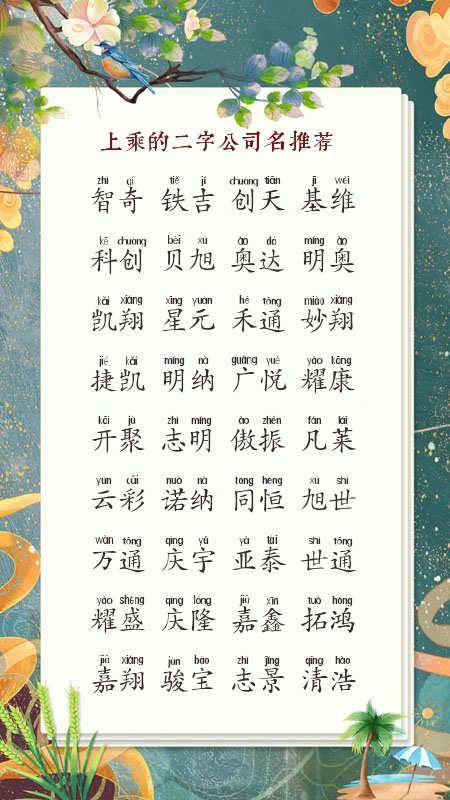 上乘的二字公司名推荐
zhì qí tiě jí chuàng tiān jī wéi
智奇 铁吉 创天 基维
kē chuàng bèi xù ào dá míng ào
科创 贝旭 奥达 明奥
kǎi xiáng xīng yuán hé tōng miào xiáng
凯翔 星元 禾通 妙翔
jié kǎi míng nà guǎng yuè yào kāng
捷凯 明纳 广悦 耀康
kāi jù zhì míng ào zhèn fán lái
开聚 志明 傲振 凡莱
yún cǎi nuò nà tóng héng xù shì
云彩 诺纳 同恒 旭世
wàn tōng qìng yǔ yà tài shì tōng
万通 庆宇 亚泰 世通
yào shèng qìng lóng jiā xīn tuò hóng
耀盛 庆隆 嘉鑫 拓鸿
jiā xiáng jùn bǎo zhì jǐng qīng hào
嘉翔 骏宝 志景 清浩